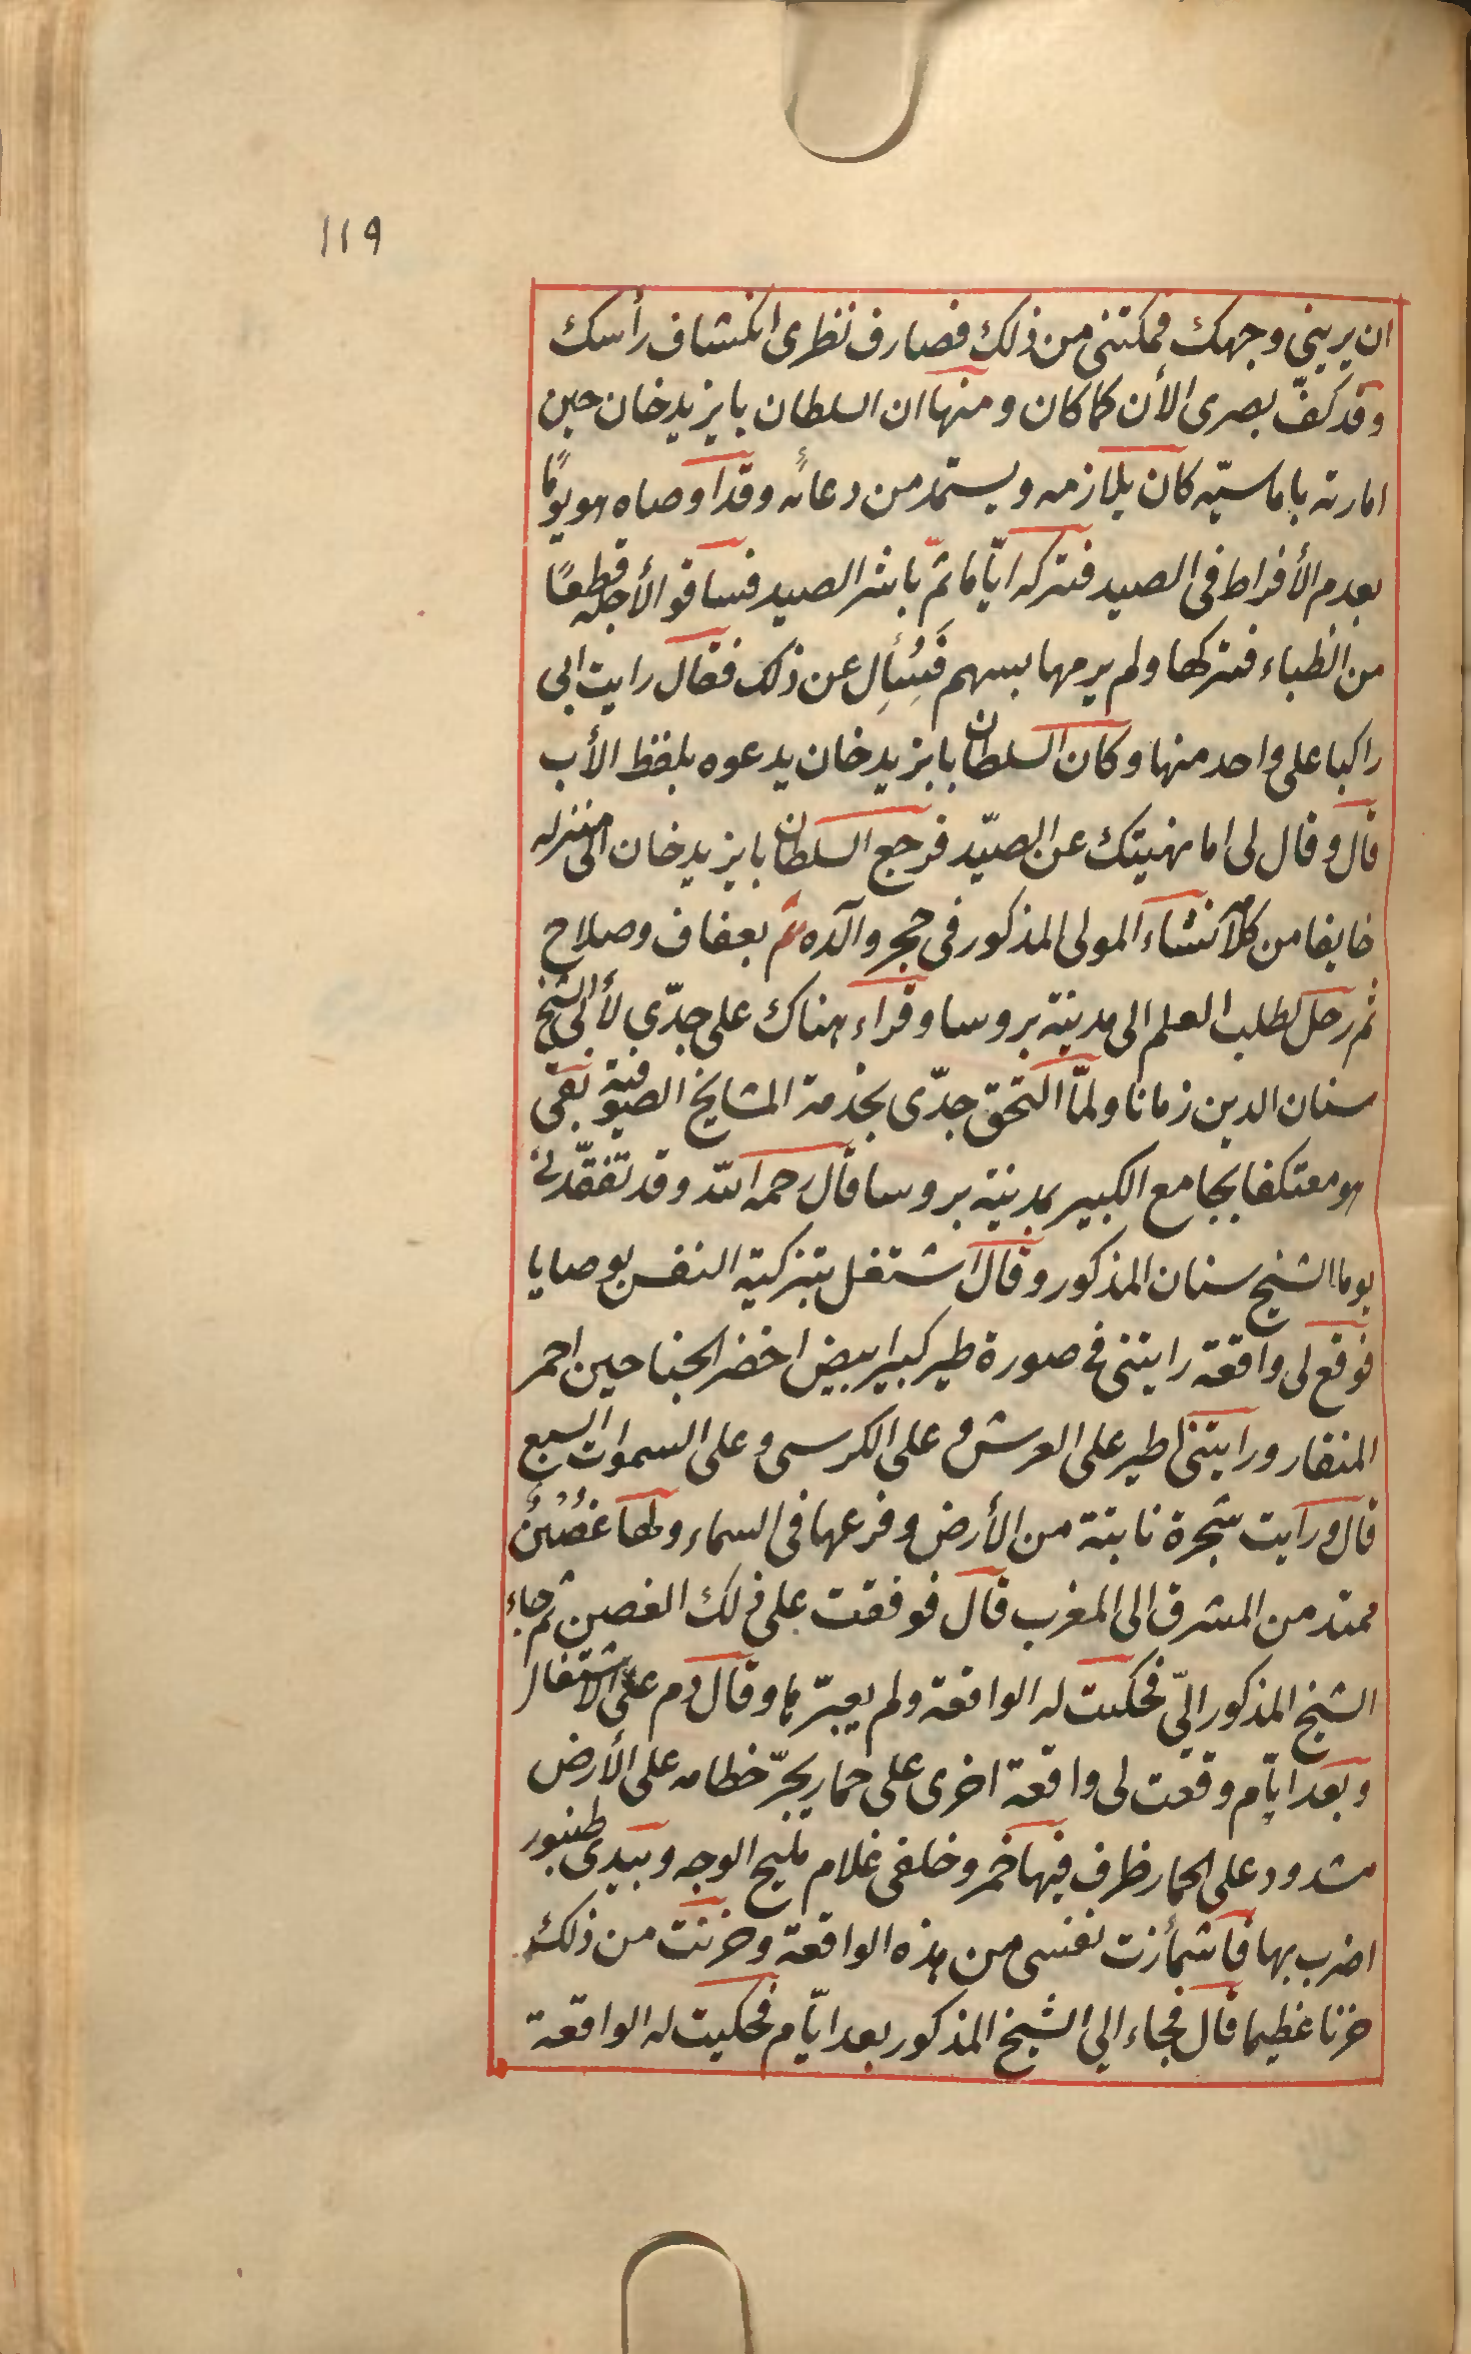 ١١٩
ان يريني وجهك فمكنتنى من ذلك فصارف نظرى انكشاف رأسك
وقد كفّ بصرى الأن كما كان ومنها ان السلطان بايزيدخان حين
امارته باماسيّه كان يلازمه ويستمد من دعائه وقد اوصاه هو يوماً
بعدم الأفراط فى الصيد فتركه ايّاما ثمّ باشر الصيد فساقو الأجله قطعًا
من الظباء فتركها ولم يرمها بسهم فَسُئِل عن ذلك فقال رايت ابى
راكبا على واحد منها وكان السلطان بايزيدخان يدعوه بلفظ الأب
قال وقال لى اما نهيتك عن الصيّد فرجع السلطان بايزيدخان الى منزله
خايفا من كلامه نشاء المولى المذكور فى حجر والده ثم بعفاف وصلاح
ثم رحل لطلب العلم الى مدينة بروسا وقراء هناك على جدّي لأبى الشيخ
سنان الدين زمانا ولمّا التحق جدّى بخدمة المشايخ الصوفية بقى
هو معتكفا بجامع الكبير بمدينة بروسا قال رحمه الله وقد تفقّدنى
يوما الشيخ سنان المذكور وقال اشتغل بتزكية النفس بوصايا
فوقع لى واقعة رايتنى فى صورة طير كبير ابيض اخضر الجناحين احمر
المنقار ورايتنى اطير على العرش و على الكرسى وعلى السموات السبع
قال ورايت شجرة نابتة من الأرض وفرعها فى السماء ولها غُصُنٌ
ممتد من المشرق الى المغرب قال فوقفت على ذلك الغصين ثم جاء
الشيخ المذكور اليّ فحكيت له الواقعة ولم يعبّرها وقال دم على الاشتغال
وبعد ايّام وقعت لى واقعة اخرى على حمار يجرّ خطامه على الأرض
مشدود على الحمار ظرف فيها خمر وخلفى غلام مليح الوجه وبيدى طنبور
اضرب بها فاشمأزت نفسى من هذه الواقعة وحزنت من ذلك
حزنا عظيما قال فجاء الي الشيخ المذكور بعد ايّام فحكيت له الواقعة